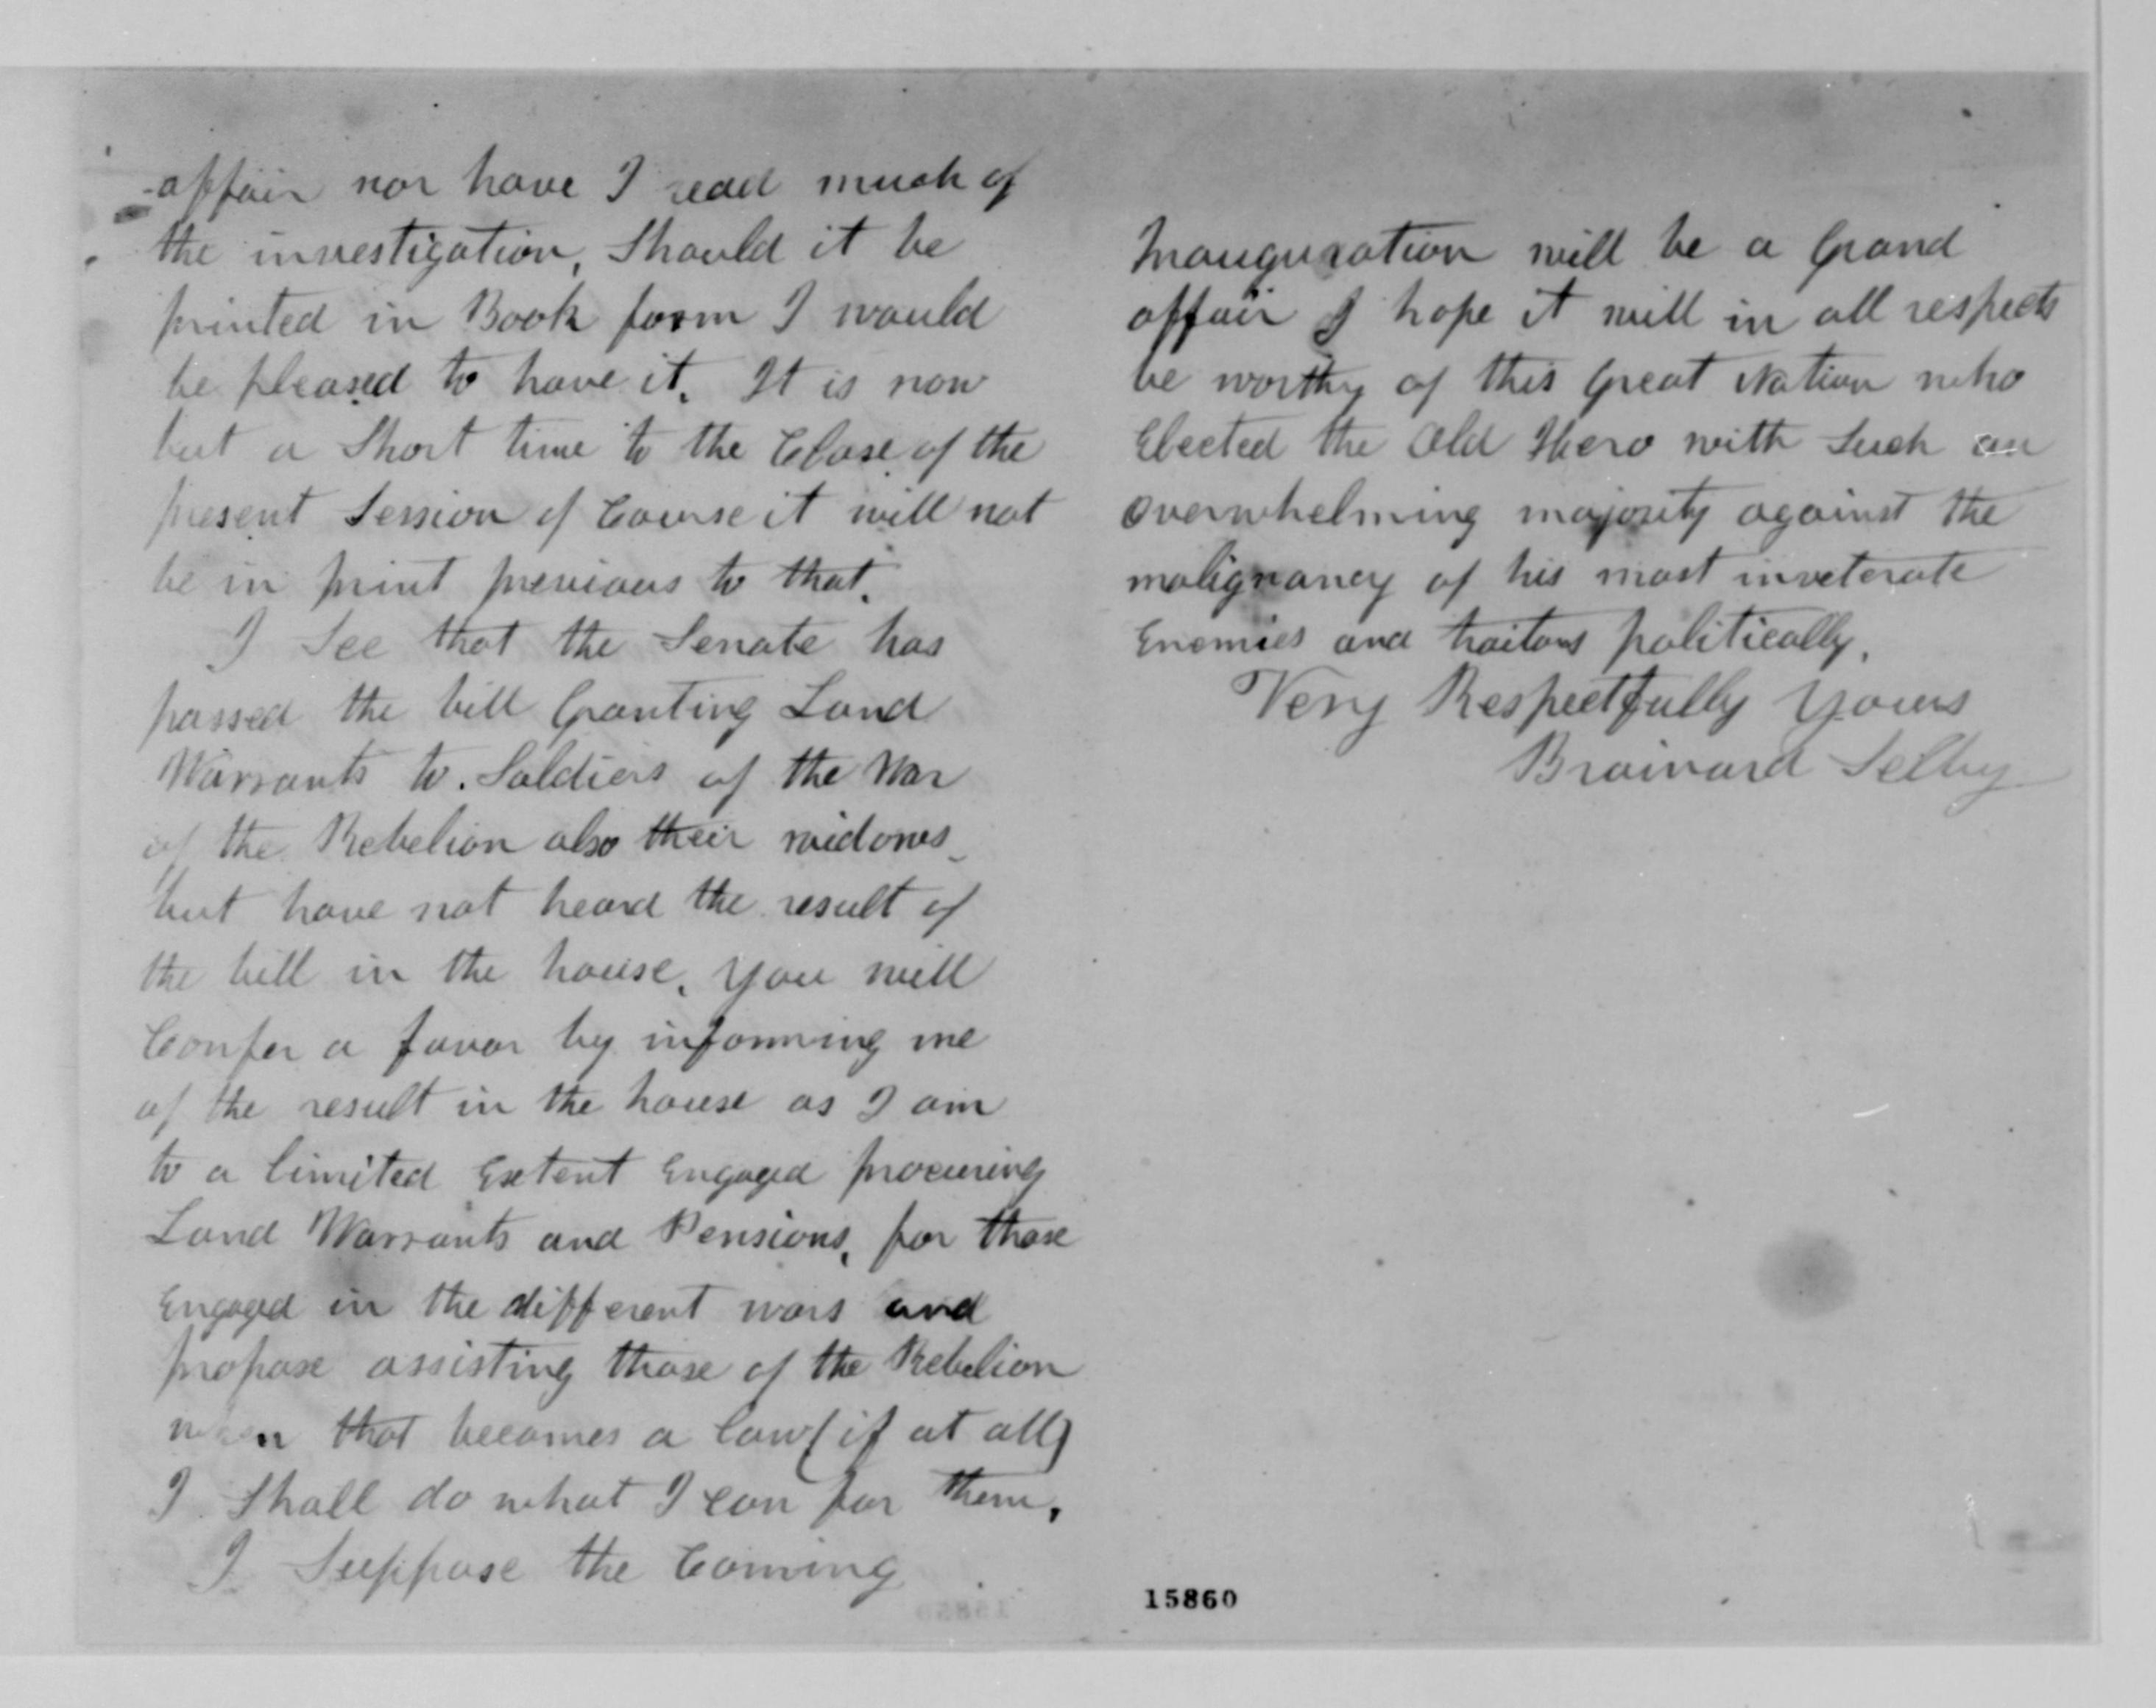 affair nor have I read much of
the investigation, Should it be
printed in Book form I would
be pleased to have it. It is now
but a Short time to the Close of the
present Session of Course it will not
be in print previous to that.
I See that the Senate has
passed the bill Granting Land
Warrants to Soldiers of the War
of the Rebelion also their widows
but have not heard the result of
the bill in the house. You will
Confer a favor by informing me
of the result in the house as I am
to a limited Extent Engaged procuring
Land Warrants and Pensions, for those
Engaged in the different wars and
propose assisting those of the Rebelion
when that becomes a law (if at all)
I Shall do what I can for them,
I Suppose the Coming
Inauguration will be a Grand
affair I hope it will in all respects
be worthy of this Great Nation who
Elected the Old Hero with Such an
overwhelming majority against the
malignancy of his most inveterate
Enemies and traitors politically.
Very Respectfully Yours
Brainard Selby
15860